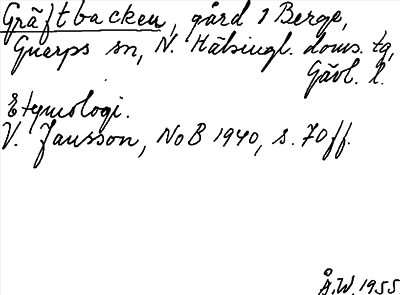 Gräftbacken, gård i Berge,
Gnarps sn, N. Hälsingl. doms. tg,
Gävl. l.
Etymologi.
V. Jansson, NoB 1940, s. 70 ff.
Å.W. 1955.